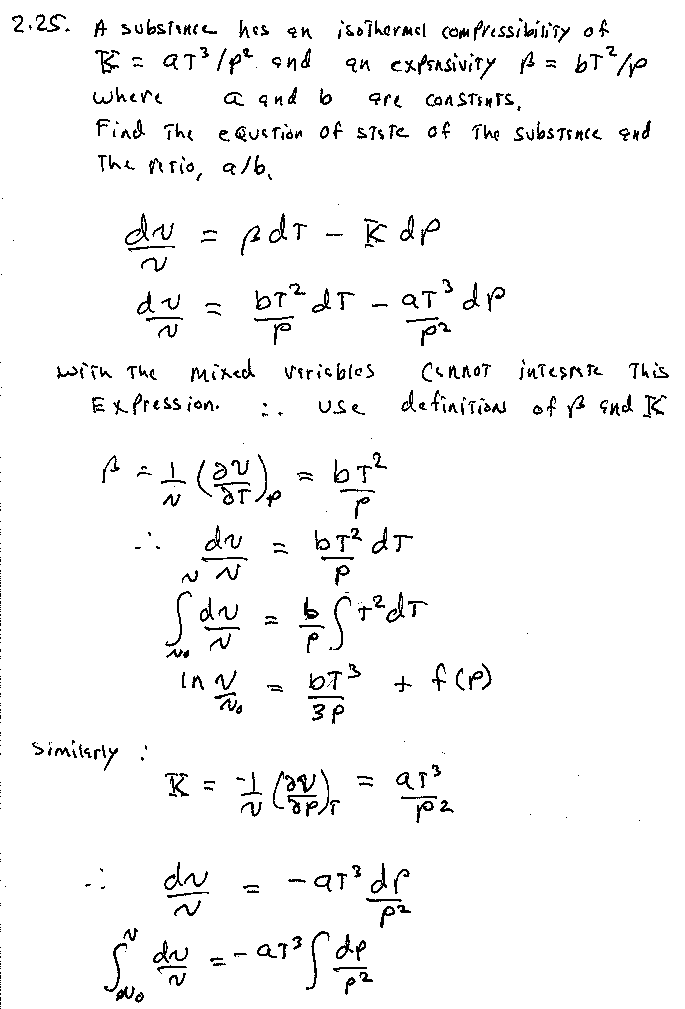 2.25. A substance has an isothermal compressibility of
K = aT³/p² and an expansivity β = bT²/p
where a and b are constants.
Find the equation of state of the substance and
the ratio, a/b.
dv/v = βdT − K dp
dv/v = bT²/p dT − aT³/p² dp
with the mixed variables cannot integrate this
Expression. ∴ use definitions of β and K
β = 1/v (∂v/∂T)p = bT²/p
∴ dv/v = bT²/p dT
∫_v₀^v dv/v = b/p ∫T²dT
ln v/v₀ = bT³/3p + f(p)
Similarly :
K = -1/v (∂v/∂p)T = aT³/p²
∴ dv/v = -aT³ dp/p²
∫_v₀^v dv/v = -aT³ ∫ dp/p²